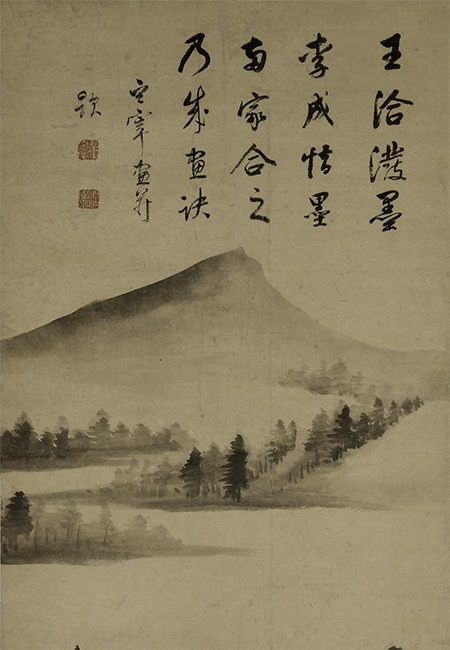 王洽潑墨
李成惜墨
兩家合之
乃成畫訣
玄宰畫并
題